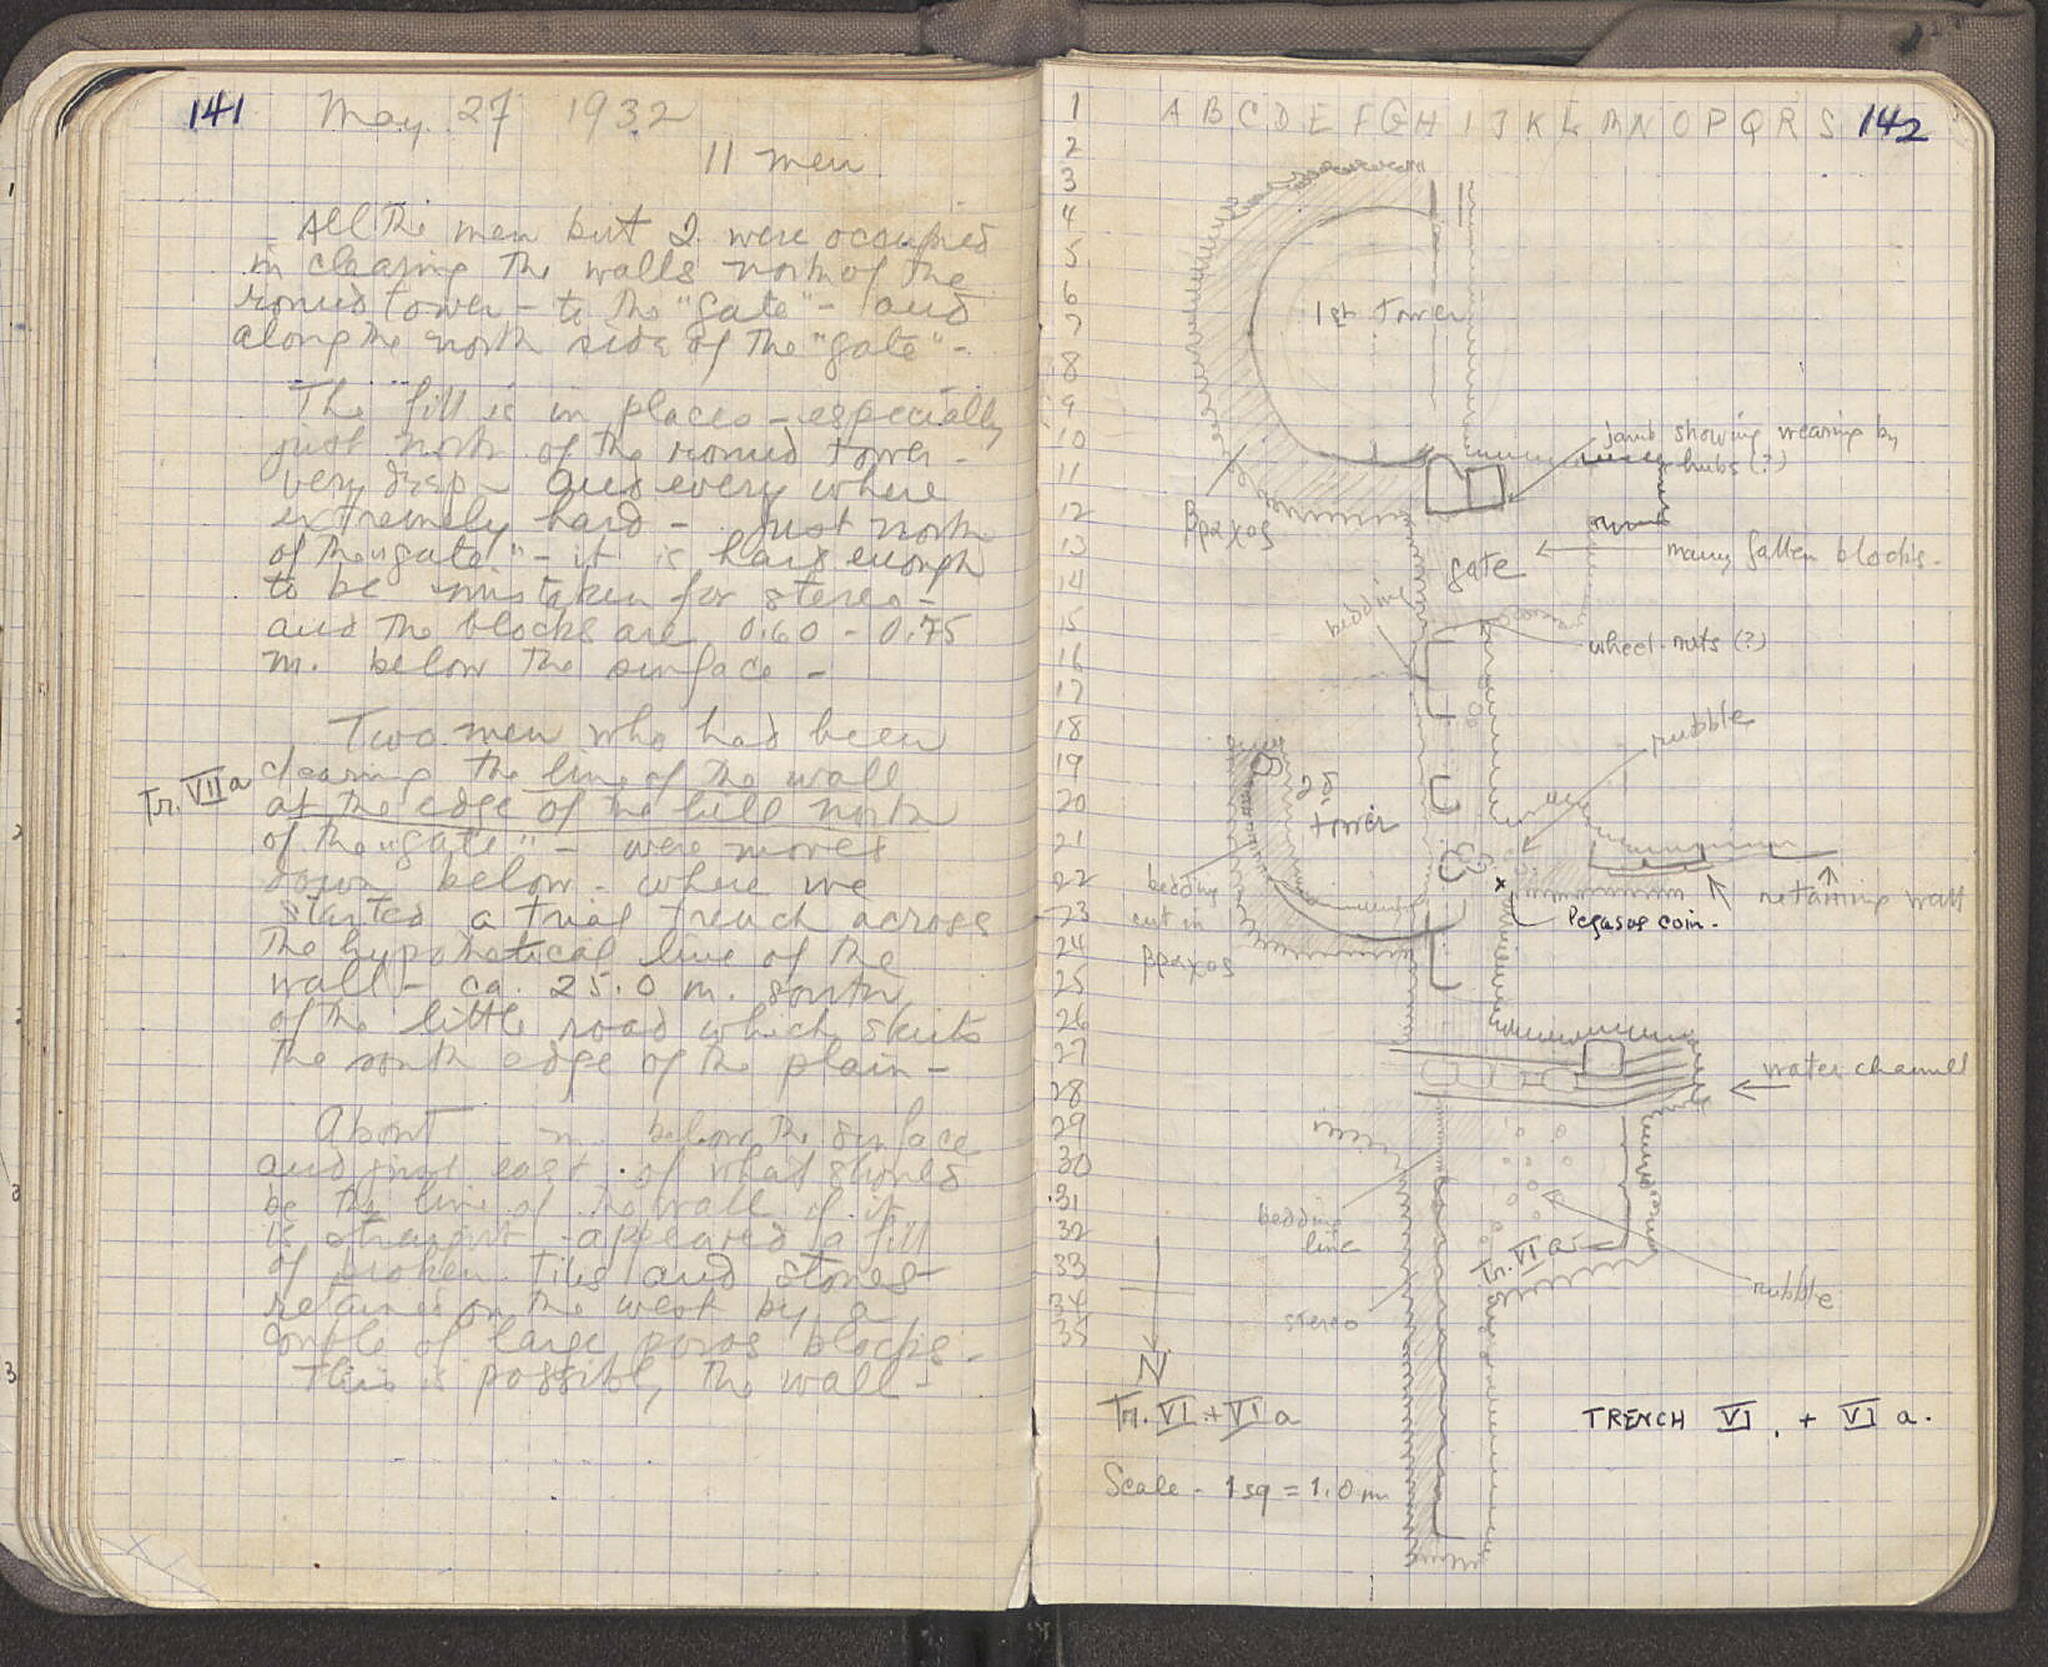 141 May 27 1932
11 men
All the men but 2 were occupied
in clearing the walls north of the
round tower - to the "gate" - and
along the north side of the "gate" -
The fill is in places - especially
just north of the round tower -
very deep - and every where
extremely hard - just north
of the "gate" - it is hard enough
to be mistaken for stereo -
and the blocks are 0.60 - 0.75
m. below the surface -
Two men who had been
Tr. VII a
clearing the line of the wall
at the edge of the hill north
of the "gate" - were moved
down below - where we
started a trial trench across
the hypothetical line of the
wall - ca. 25.0 m. south
of the little road which skirts
the north edge of the plain -
About m. below the surface
and just east of what should
be the line of the wall if it
is straight - appeared a fill
of broken tiles and stones
retained on the west by a
couple of large poros blocks -
This is possibly the wall -
142
A B C D E F G H I J K L M N O P Q R S
1
2
3
4
5
6
7
8
9
10
11
12
13
14
15
16
17
18
19
20
21
22
23
24
25
26
27
28
29
30
31
32
33
34
35
1st tower
jamb showing wearing by
hubs (?)
βραχος
gate
many fallen blocks.
bedding
wheel-ruts (?)
rubble
2d
tower
bedding
cut in
βραχος
retaining wall
Pegasos coin.
water channel
bedding
line
Tr. VI a
rubble
stereo
N
Tr. VI + VI a
TRENCH VI. + VI a.
Scale - 1 sq = 1.0 m